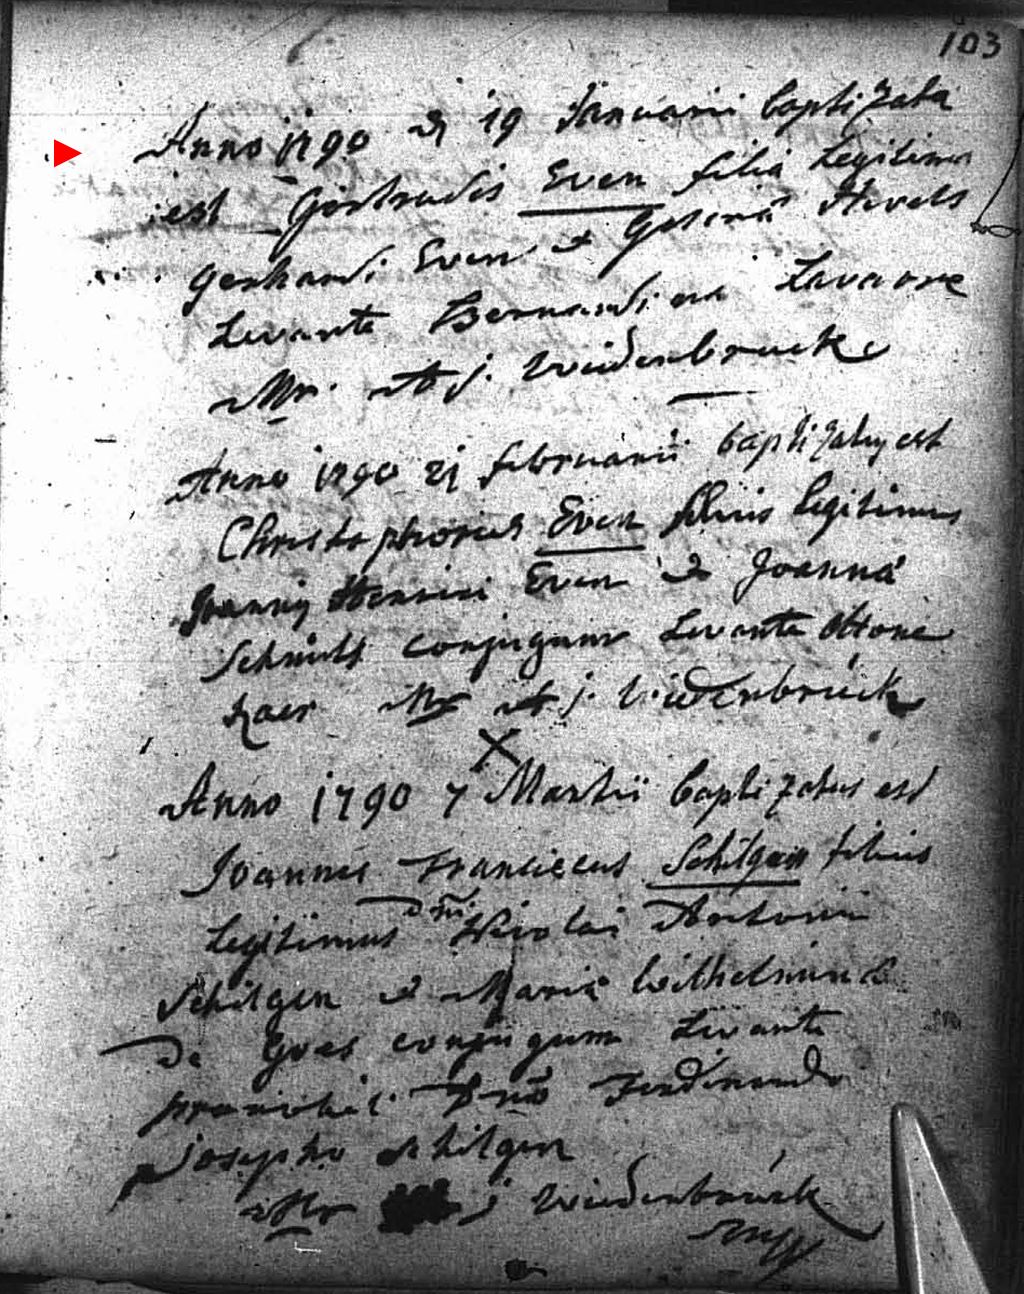 103
Anno 1790 19 Januarii baptizata
est Gertrudis Even filia legitima
Gerhardi Even et Gesina Hevels
Levante Bernardi
Mr. A j. Wiedenbruck
Anno 1790 21 februarii baptizatus est
Christophorus Even filius legitimus
Joannis Henrici Even et Joanna
Schmits conjugum Levante Ottone
Mr A j. Wiedenbrück
X
Anno 1790 7 Martii baptizatus est
Joannes Franciscus Schilgen filius
Legitimus Dni Nicolai Antonii
Schilgen et Maria Wilhelmina
De Goes conjugum Levante
Dno Ferdinando
Josepho Schilgen
Mr j Wiedenbrück